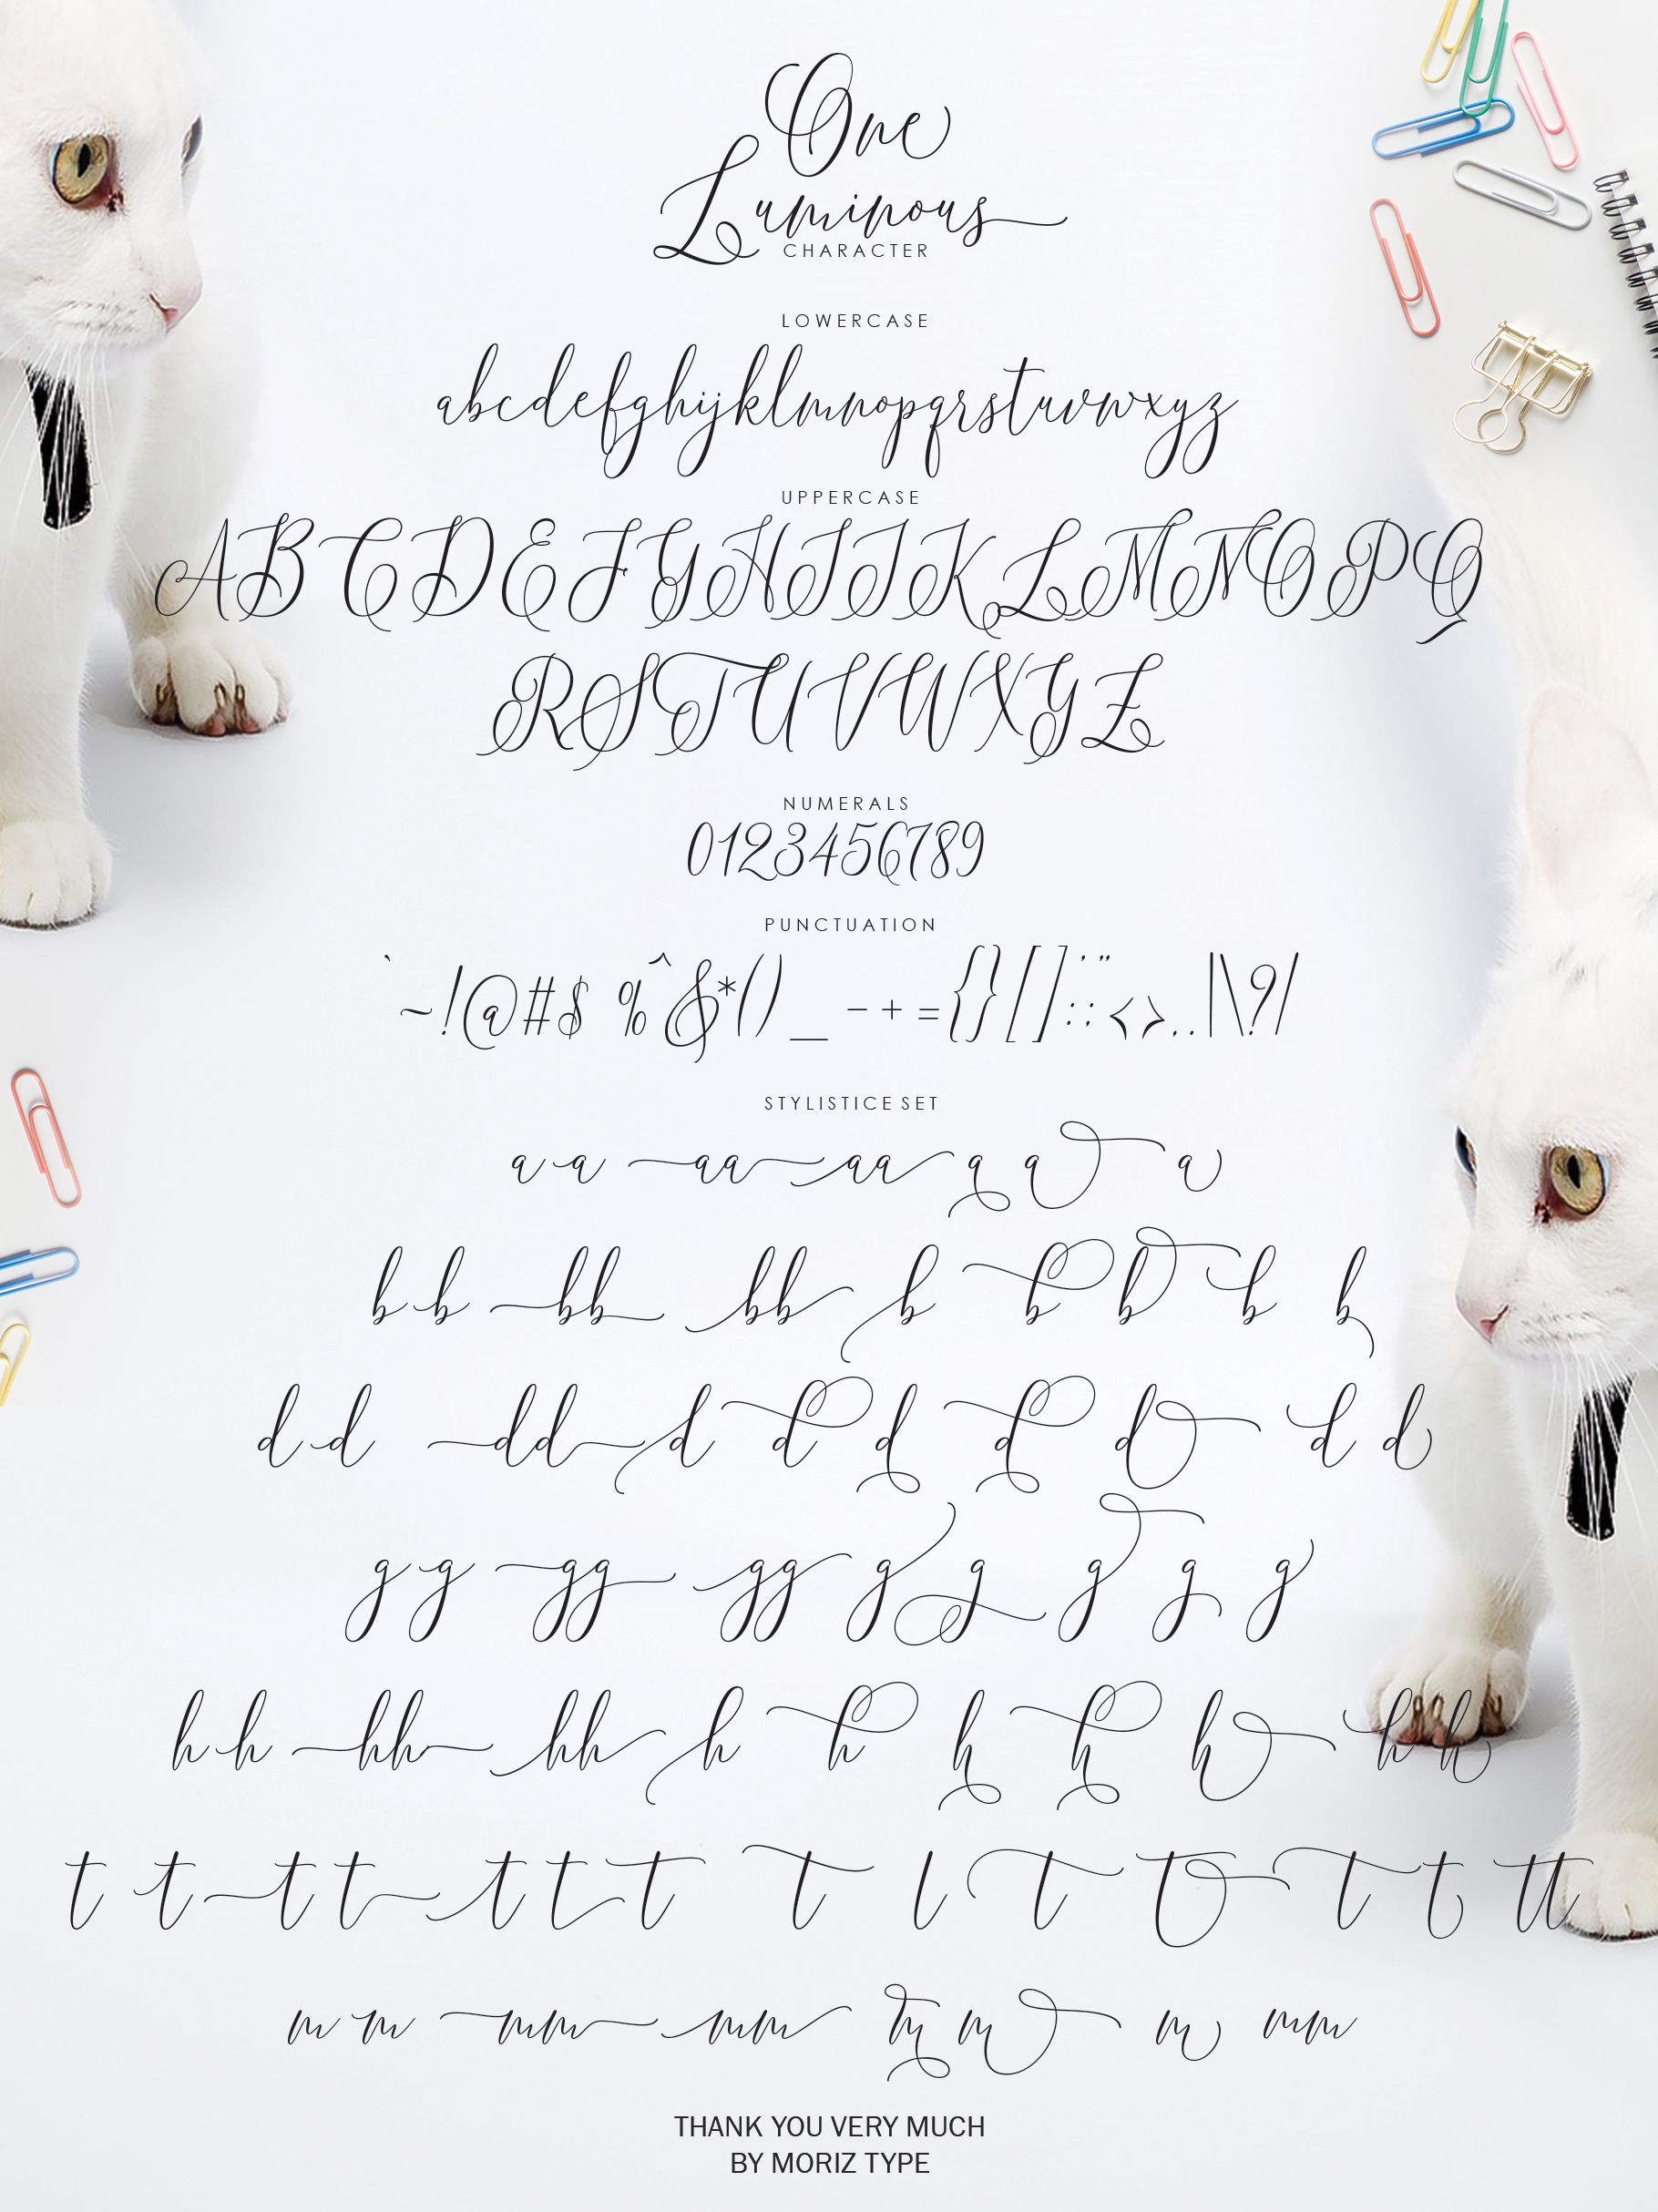 One
Luminous
CHARACTER
LOWERCASE
abcdefghijklmnopqrstuvwxyz
UPPERCASE
ABCDEFGHIJKLMNOPQ
RSTUVWXYZ
NUMERALS
0123456789
PUNCTUATION
`~!@#$ %^&*()_ -+={}[]:;'"<>,.|\?/
STYLISTICE SET
a a aa aa a a a
b b bb bb b b b b b
d d dd d d d d d d d
g g gg gg g g g g g
h h hh hh h h h h h h h
t t t t t t t t t t t t t tt
m m mm mm m m m mm
THANK YOU VERY MUCH
BY MORIZ TYPE